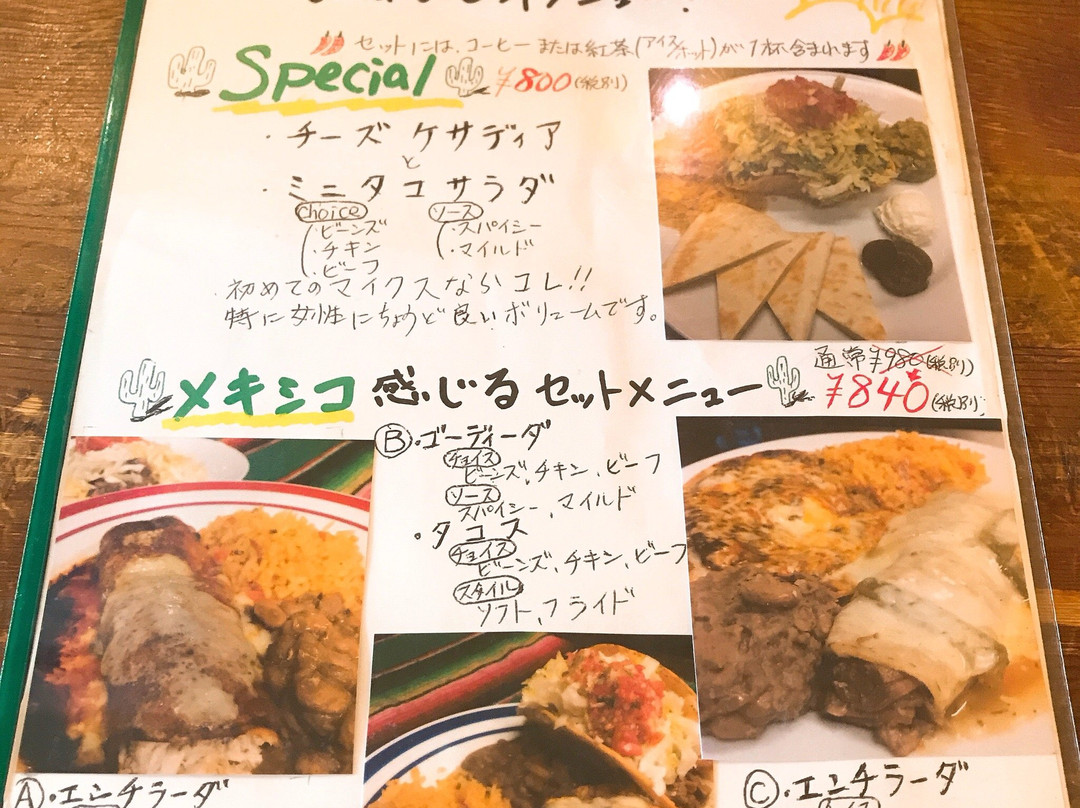 セットには、コーヒーまたは紅茶(アイス/ホット)が1杯含まれます
Special ¥800(税別)
・チーズ ケサディア
と
・ミニタコサラダ
choice ソース
・ビーンズ ・スパイシー
・チキン ・マイルド
・ビーフ
初めてのマイクスならコレ!!
特に女性にちょうど良いボリュームです。
通常¥980(税別)
メキシコ 感じる セットメニュー ¥840(税別)
Ⓑ・ゴーディーダ
チョイス
ビーンズ、チキン、ビーフ
ソース
スパイシー、マイルド
・タコス
チョイス
ビーンズ、チキン、ビーフ
スタイル
ソフト、フライド
Ⓐ・エンチラーダ
Ⓒ・エンチラーダ